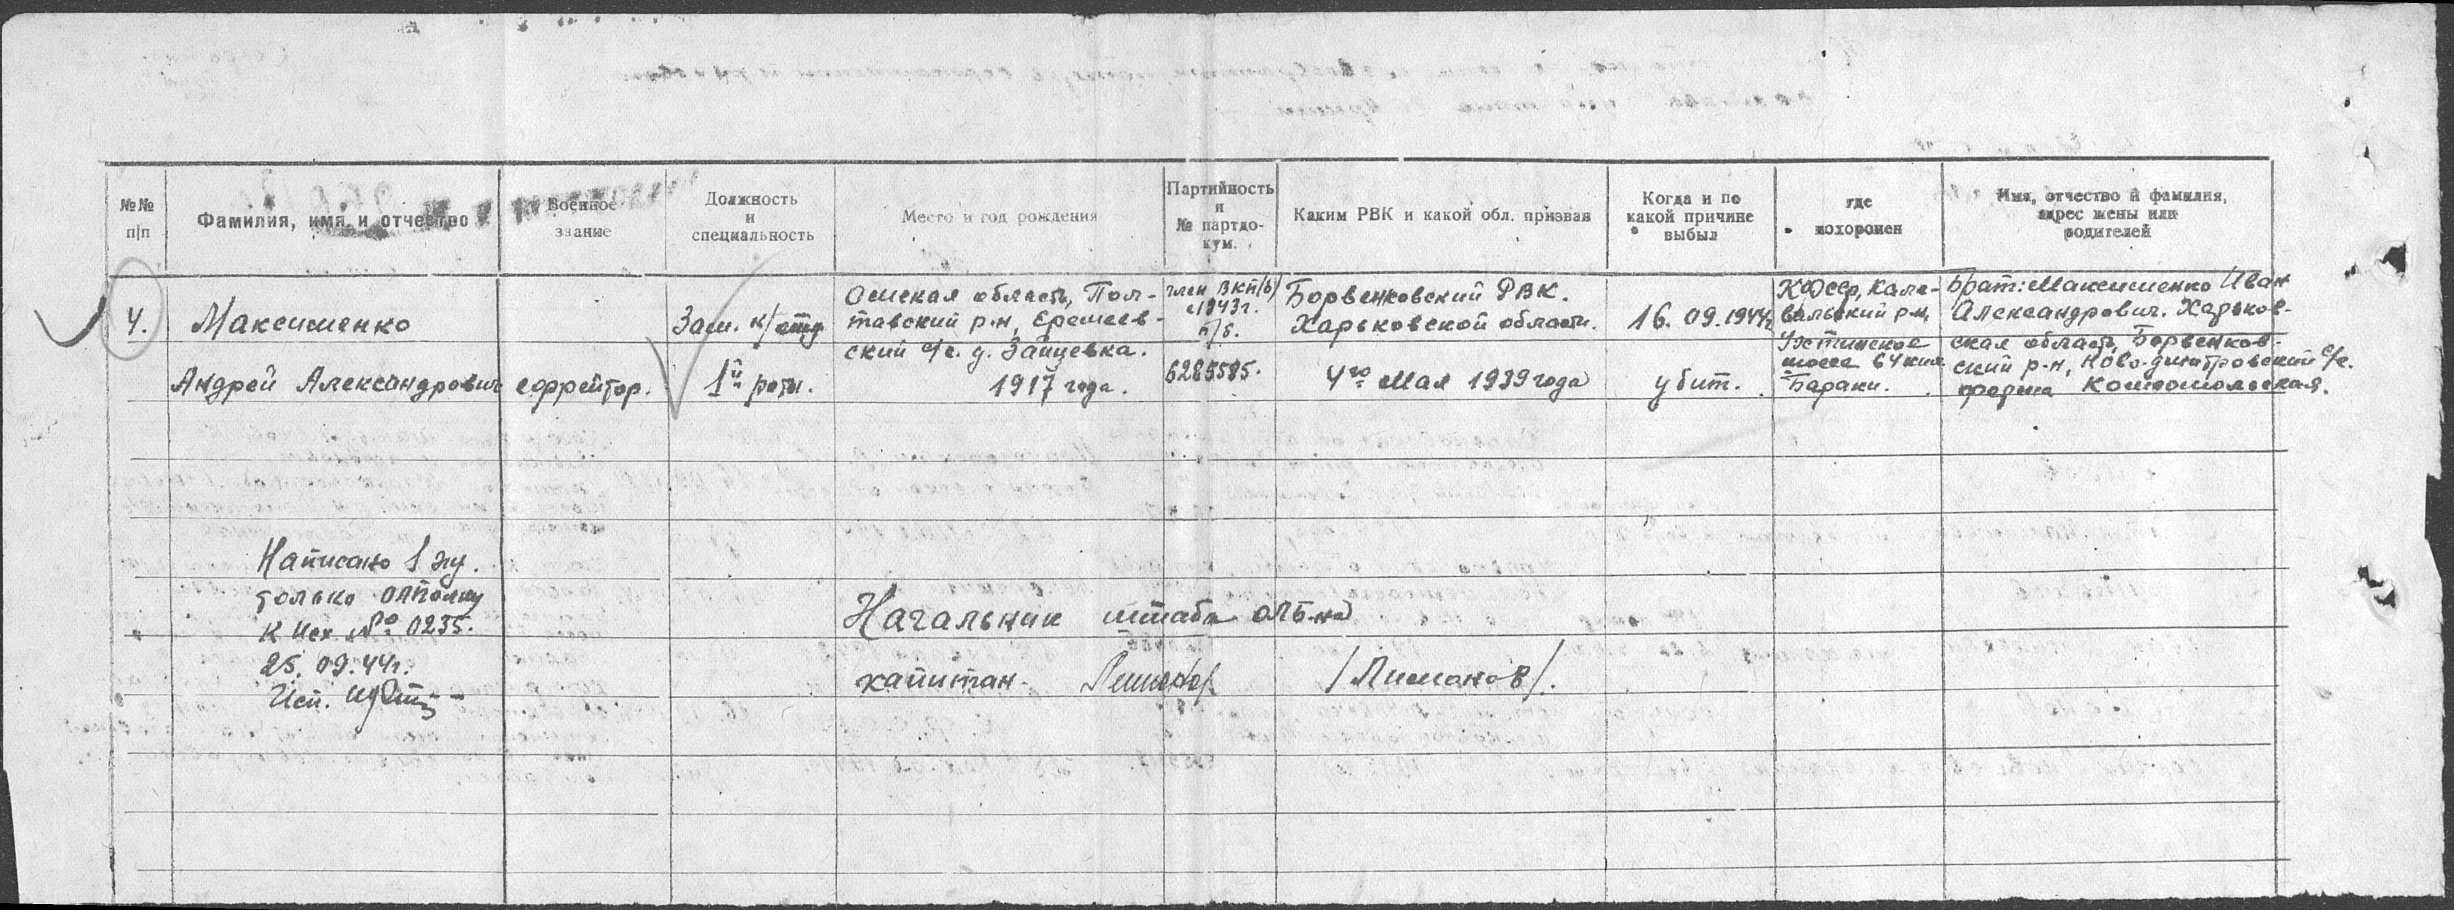 №№ п|п
Фамилия, имя и отчество
Военное звание
Должность и специальность
Место и год рождения
Партийность и № партдокум.
Каким РВК и какой обл. призван
Когда и по какой причине выбыл
где похоронен
Имя, отчество и фамилия, адрес жены или родителей
4.
Максименко
Андрей Александрович
ефрейтор.
Зам. к/
1й роты.
Омская область, Пол-
тавский р-н, Еремеев-
ский с/с. д. Зайцевка.
1917 года.
член ВКП(б)
с 1943 г.
п/б.
6285585.
Борвенковский РВК.
Харьковской области.
4го Мая 1939 года
16.09.1944г
убит.
КФССР, Кале-
вальский р-н,
Ухтинское
шоссе 64 км
Бараки.
Брат: Максименко Иван
Александрович. Харьков-
ская область, Борвенков-
ский р-н, Ново-Дмитровский с/с.
Комсомольская.
Написано 1 экз.
только
к Исх. № 0235.
25.09.44г.
Исп.
Начальник штаба
капитан
/Лиманов/.